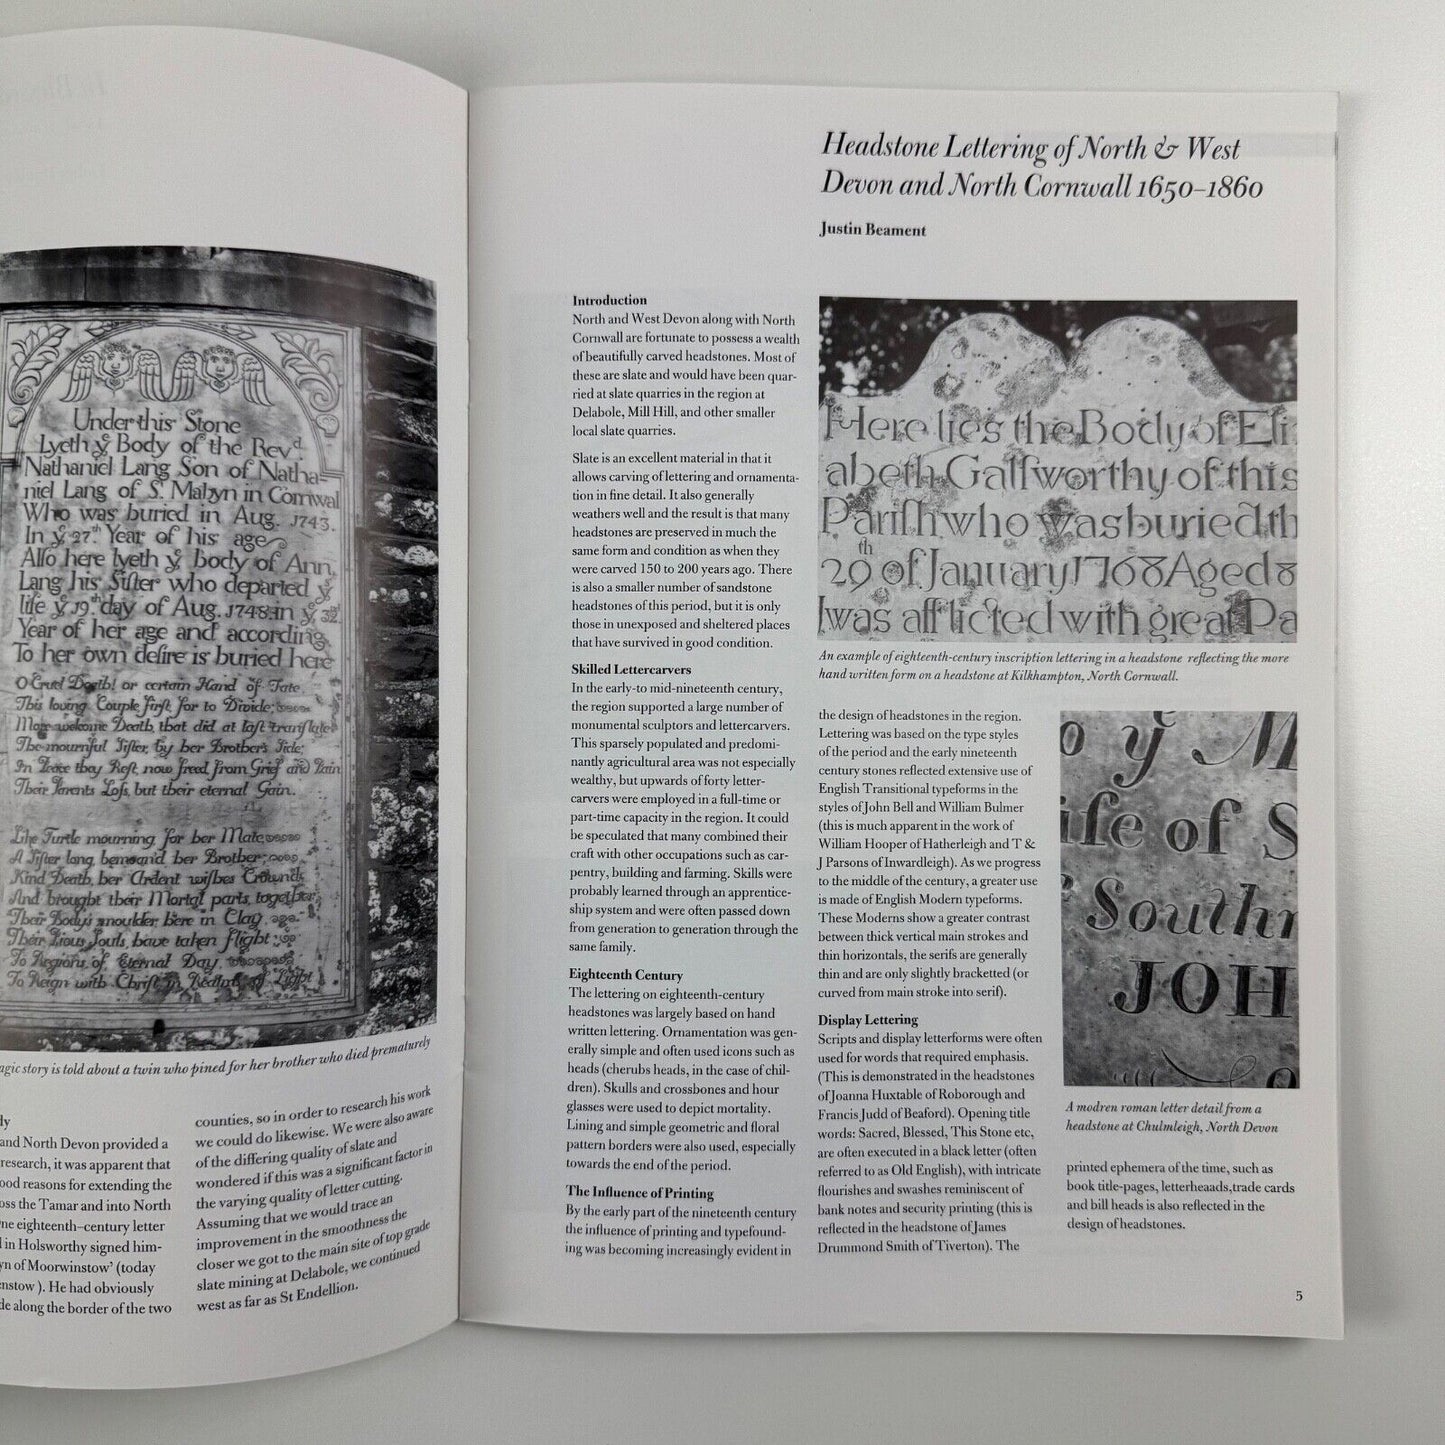 Under this Stone
Lyeth yͤ Body of the Revᵈ.
Nathaniel Lang Son of Natha=
niel Lang of Sͭ. Mabyn in Cornwal
Who was buried in Aug. 1743.
In yͤ 27ᵗʰ Year of his age
Alſo here lyeth yͤ body of Ann
Lang his Siſter who departed yͤ
life yͤ 19ᵗʰ day of Aug. 1748 in yͤ 32ᵈ.
Year of her age and according
To her own deſire is buried here
O Cruel Death! or certain Hand of Fate,
This loving Couple firſt for to Divide;
welcome Death, that did at laſt tranſlate
The mournful Siſter, by her Brother's Side;
In Peace they Reſt, now freed from Grief and Pain
Their Parents Loſs, but their eternal Gain.
Like Turtle mourning for her Mate
A Siſter lang, bemoan'd her Brother;
Kind Death, her Ardent wiſhes Crown'd
And brought their Mortal parts together,
Their Bodys moulder here in Clay
Their Pious Souls have taken flight
To Regions of Eternal Day
To Reign with Chriſt in Realms of Light
agic story is told about a twin who pined for her brother who died prematurely
dy
and North Devon provided a
research, it was apparent that
ood reasons for extending the
oss the Tamar and into North
ne eighteenth–century letter
d in Holsworthy signed him-
yn of Moorwinstow' (today
enstow ). He had obviously
de along the border of the two
counties, so in order to research his work
we could do likewise. We were also aware
of the differing quality of slate and
wondered if this was a significant factor in
the varying quality of letter cutting.
Assuming that we would trace an
improvement in the smoothness the
closer we got to the main site of top grade
slate mining at Delabole, we continued
west as far as St Endellion.
Headstone Lettering of North & West
Devon and North Cornwall 1650–1860
Justin Beament
Introduction
North and West Devon along with North
Cornwall are fortunate to possess a wealth
of beautifully carved headstones. Most of
these are slate and would have been quar-
ried at slate quarries in the region at
Delabole, Mill Hill, and other smaller
local slate quarries.
Slate is an excellent material in that it
allows carving of lettering and ornamenta-
tion in fine detail. It also generally
weathers well and the result is that many
headstones are preserved in much the
same form and condition as when they
were carved 150 to 200 years ago. There
is also a smaller number of sandstone
headstones of this period, but it is only
those in unexposed and sheltered places
that have survived in good condition.
Skilled Lettercarvers
In the early-to mid-nineteenth century,
the region supported a large number of
monumental sculptors and lettercarvers.
This sparsely populated and predomi-
nantly agricultural area was not especially
wealthy, but upwards of forty letter-
carvers were employed in a full-time or
part-time capacity in the region. It could
be speculated that many combined their
craft with other occupations such as car-
pentry, building and farming. Skills were
probably learned through an apprentice-
ship system and were often passed down
from generation to generation through the
same family.
Eighteenth Century
The lettering on eighteenth-century
headstones was largely based on hand
written lettering. Ornamentation was gen-
erally simple and often used icons such as
heads (cherubs heads, in the case of chil-
dren). Skulls and crossbones and hour
glasses were used to depict mortality.
Lining and simple geometric and floral
pattern borders were also used, especially
towards the end of the period.
The Influence of Printing
By the early part of the nineteenth century
the influence of printing and typefound-
ing was becoming increasingly evident in
Here lies the Body of Eli
abeth Galſworthy of this
Pariſh who was buried th
29ᵗʰ of January 1768 Aged 8
I was afflicted with great Pa
An example of eighteenth-century inscription lettering in a headstone reflecting the more
hand written form on a headstone at Kilkhampton, North Cornwall.
the design of headstones in the region.
Lettering was based on the type styles
of the period and the early nineteenth
century stones reflected extensive use of
English Transitional typeforms in the
styles of John Bell and William Bulmer
(this is much apparent in the work of
William Hooper of Hatherleigh and T &
J Parsons of Inwardleigh). As we progress
to the middle of the century, a greater use
is made of English Modern typeforms.
These Moderns show a greater contrast
between thick vertical main strokes and
thin horizontals, the serifs are generally
thin and are only slightly bracketed (or
curved from main stroke into serif).
Display Lettering
Scripts and display letterforms were often
used for words that required emphasis.
(This is demonstrated in the headstones
of Joanna Huxtable of Roborough and
Francis Judd of Beaford). Opening title
words: Sacred, Blessed, This Stone etc,
are often executed in a black letter (often
referred to as Old English), with intricate
flourishes and swashes reminiscent of
bank notes and security printing (this is
reflected in the headstone of James
Drummond Smith of Tiverton). The
o y M
ife of S
Southm
JOH
A modren roman letter detail from a
headstone at Chulmleigh, North Devon
printed ephemera of the time, such as
book title-pages, letterheaads,trade cards
and bill heads is also reflected in the
design of headstones.
5